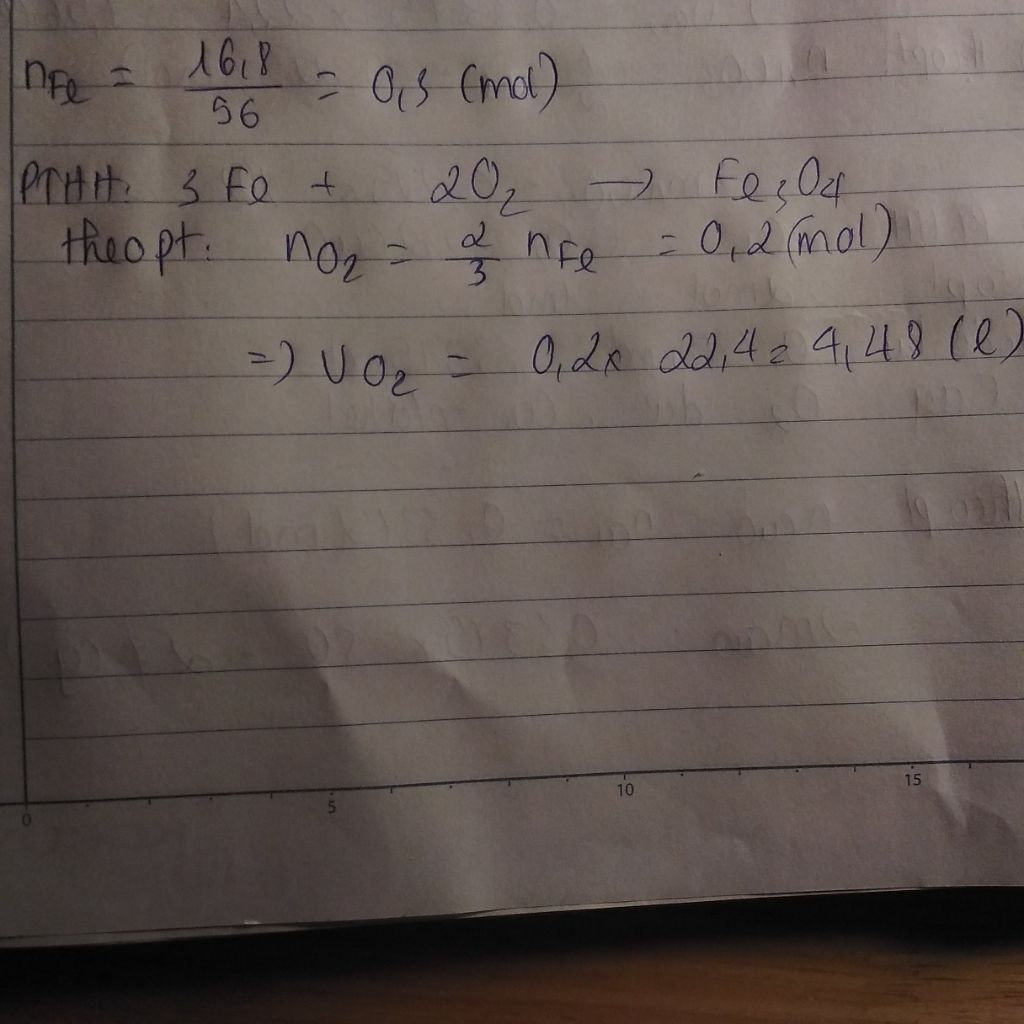 nFe = 16,8/56 = 0,3 (mol)
PTHH: 3 Fe + 2O2 → Fe3O4
theo pt: nO2 = 2/3 nFe = 0,2 (mol)
=> VO2 = 0,2 x 22,4 = 4,48 (l)
0 5 10 15